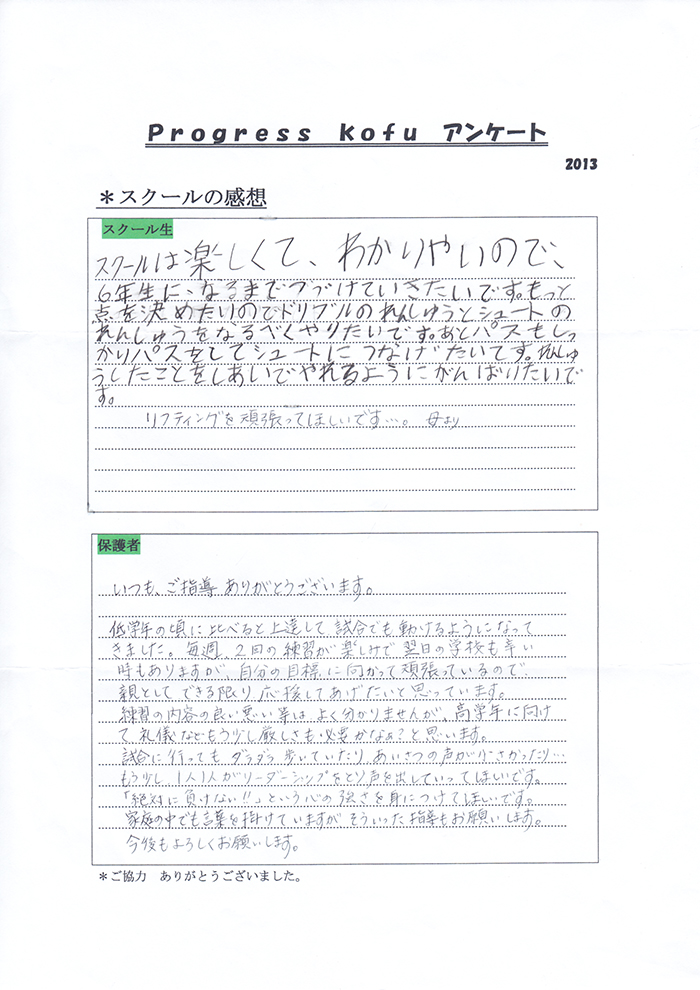 Progress Kofu アンケート
2013
＊スクールの感想
スクール生
スクールは楽しくて、わかりやいので、
6年生に、なるまでつづけていきたいです。もっと
点を決めたいのでドリブルのれんしゅうとシュートの
れんしゅうをなるべくやりたいです。あとパスもしっ
かりパスをしてシュートにつなげたいてす。れんしゅ
うしたことをしあいでやれるようにがんばりたいで
す。
リフティングを頑張ってほしいです…。 母より
保護者
いつも、ご指導ありがとうございます。
低学年の頃に比べると上達して試合でも動けるようになって
きました。毎週、2回の練習が楽しみで翌日の学校も辛い
時もありますが、自分の目標に向かって頑張っているので、
親としてできる限り応援してあげたいと思っています。
練習の内容の良い悪い等は、よく分かりませんが、高学年に向け
て礼儀などもう少し厳しさも必要かなぁ?と思います。
試合に行ってもダラダラ歩いていたり、あいさつの声が小さかったり…
もう少し、1人1人がリーダーシップをとり声を出していってほしいです。
「絶対に負けない!!」という心の強さを身につけてほしいです。
家庭の中でも言葉を掛けていますがそういった指導もお願いします。
今後もよろしくお願いします。
＊ご協力 ありがとうございました。